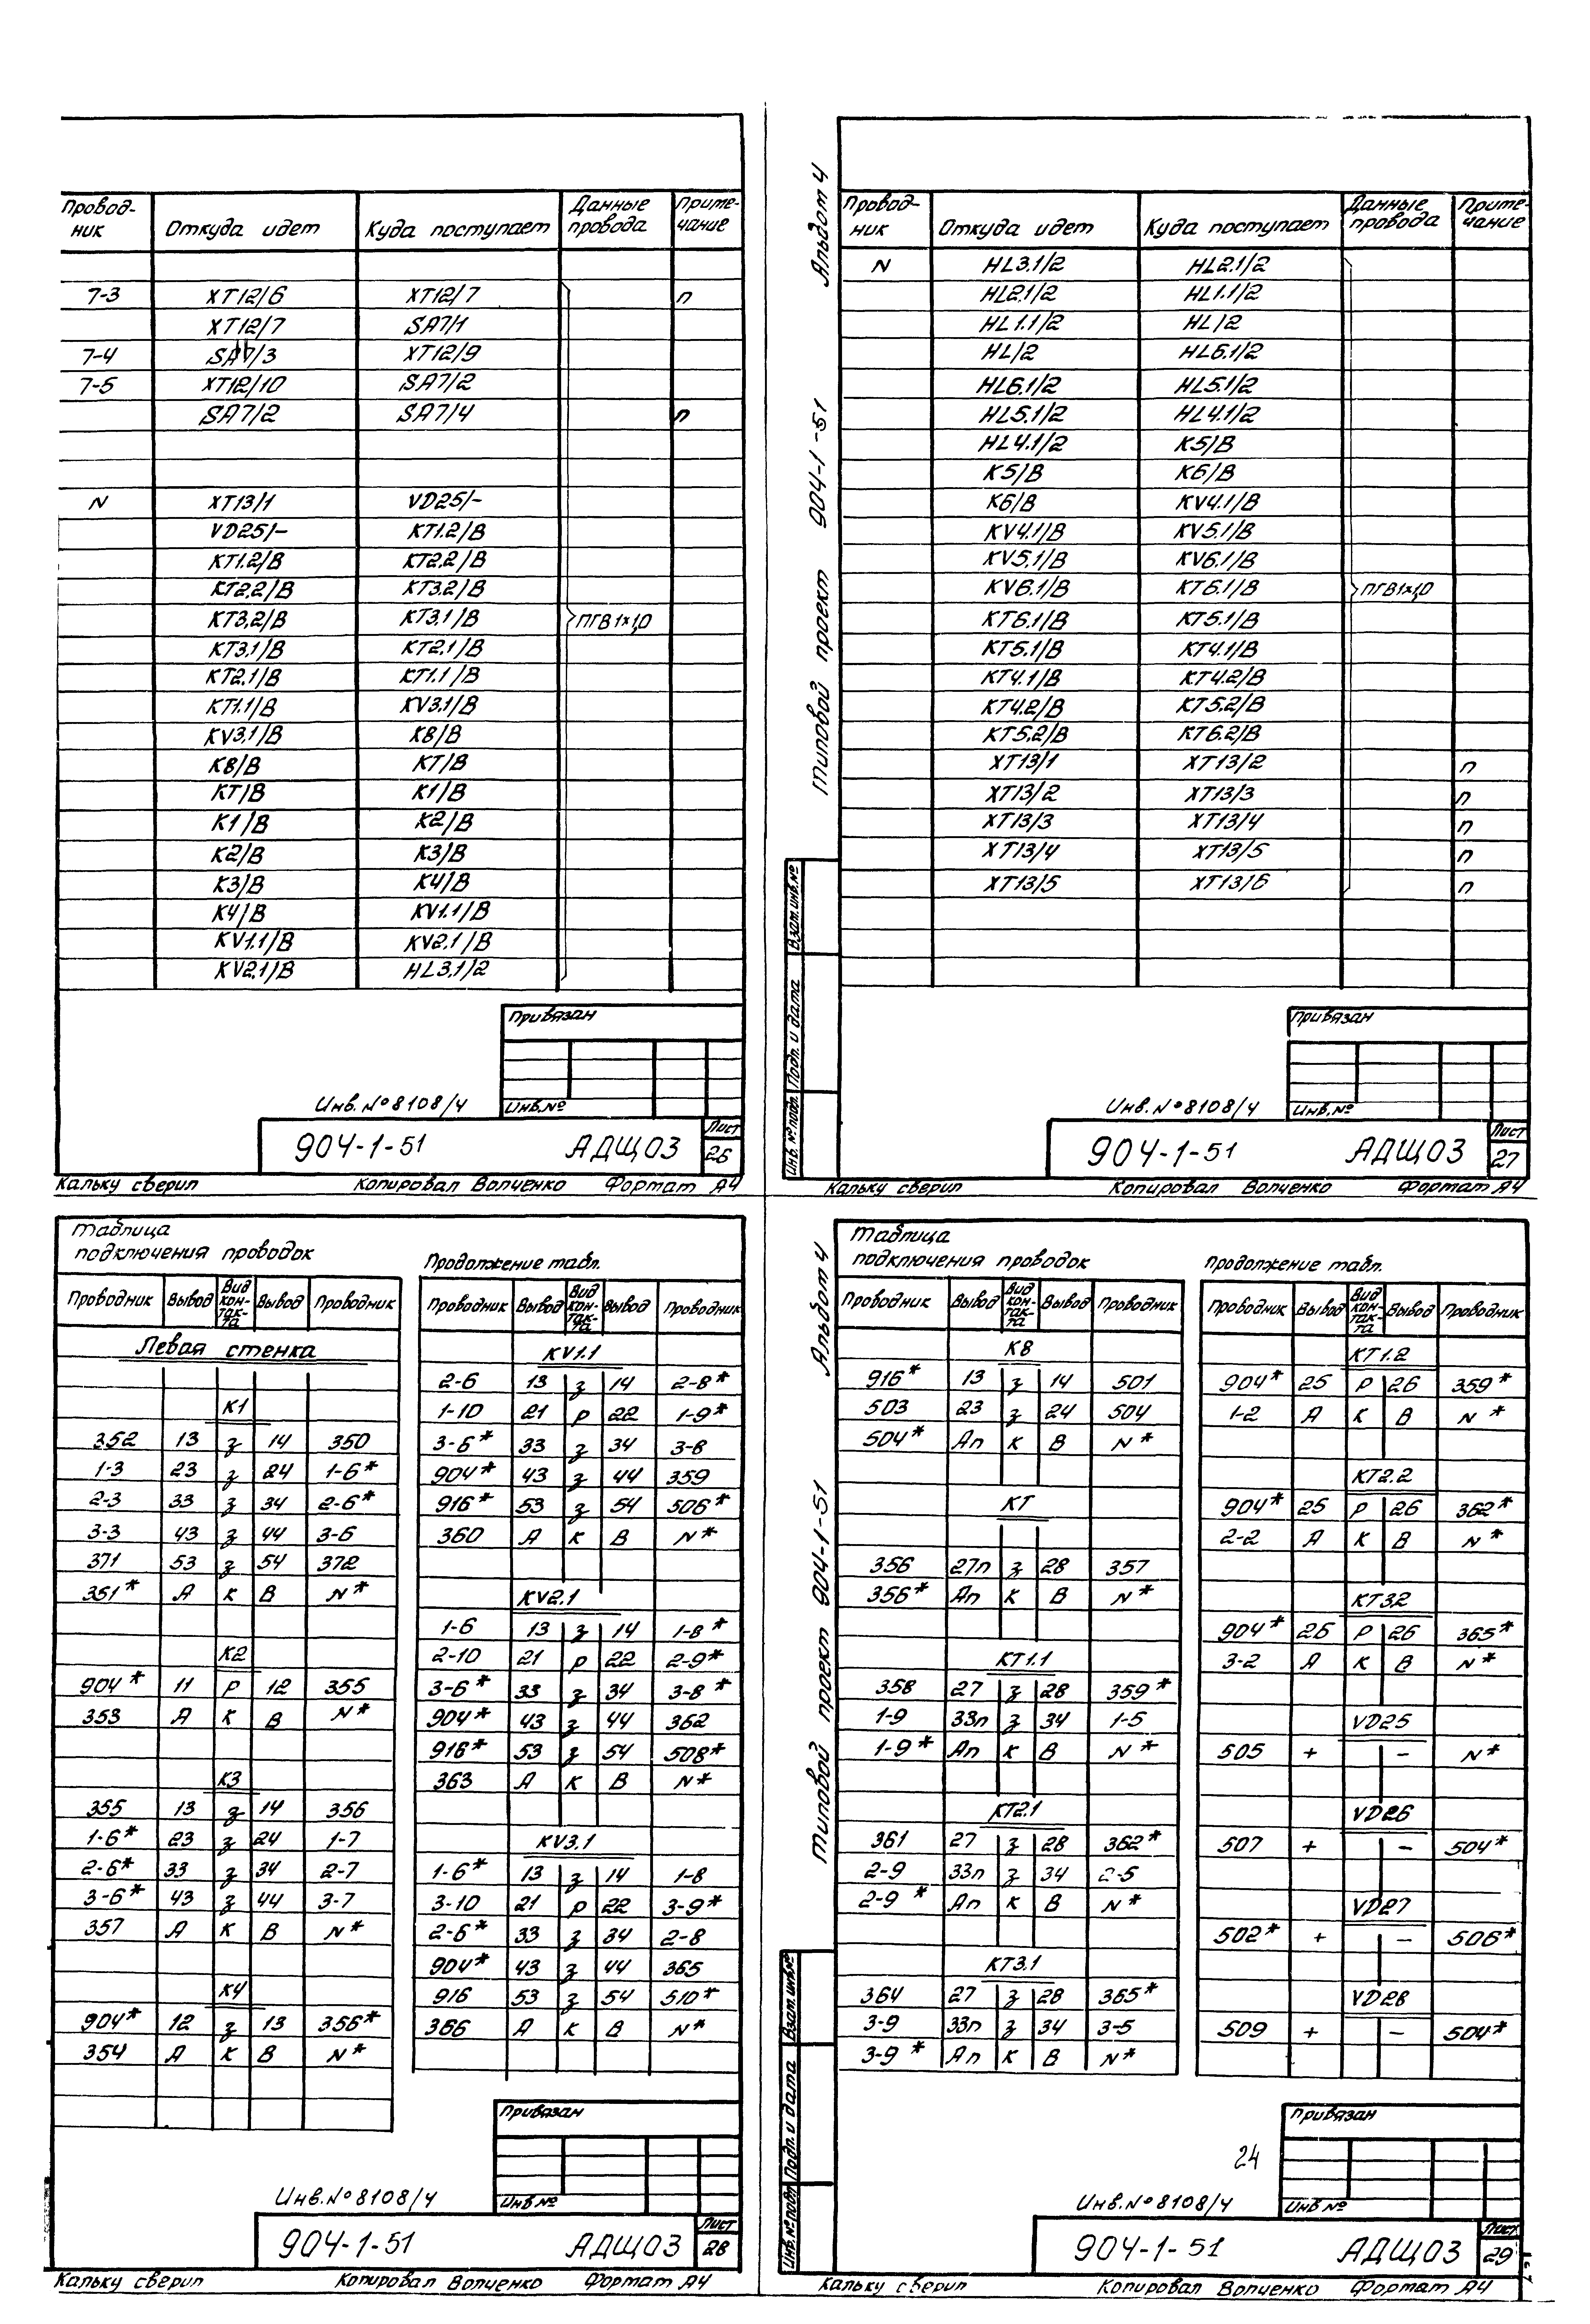 Провод-ник Откуда идет Куда поступает Данные провода Приме-чание
7-3 XT12/6 XT12/7 п
XT12/7 SA7/1
7-4 SA7/3 XT12/9
7-5 XT12/10 SA7/2
SA7/2 SA7/4 п
N XT13/1 VD25/-
VD25/- KT1.2/B
KT1.2/B KT2.2/B
KT2.2/B KT3.2/B
KT3.2/B KT3.1/B ПГВ1×1,0
KT3.1/B KT2.1/B
KT2.1/B KT1.1/B
KT1.1/B KV3.1/B
KV3.1/B K8/B
K8/B KT/B
KT/B K1/B
K1/B K2/B
K2/B K3/B
K3/B K4/B
K4/B KV1.1/B
KV1.1/B KV2.1/B
KV2.1/B HL3.1/2
Привязан
Инв.№
Инв.№8108/4
904-1-51 АДЩ03 Лист 26
Кальку сверил Копировал Волченко Формат А4
Альбом 4
Типовой проект 904-1-51
Провод-ник Откуда идет Куда поступает Данные провода Приме-чание
N HL3.1/2 HL2.1/2
HL2.1/2 HL1.1/2
HL1.1/2 HL/2
HL/2 HL6.1/2
HL6.1/2 HL5.1/2
HL5.1/2 HL4.1/2
HL4.1/2 K5/B
K5/B K6/B
K6/B KV4.1/B
KV4.1/B KV5.1/B
KV5.1/B KV6.1/B
KV6.1/B KT6.1/B ПГВ1×1,0
KT6.1/B KT5.1/B
KT5.1/B KT4.1/B
KT4.1/B KT4.2/B
KT4.2/B KT5.2/B
KT5.2/B KT6.2/B
XT13/1 XT13/2 п
XT13/2 XT13/3 п
XT13/3 XT13/4 п
XT13/4 XT13/5 п
XT13/5 XT13/6 п
Взам.инв.№
Подп. и дата
Инв.№подл.
Привязан
Инв.№
Инв.№8108/4
904-1-51 АДЩ03 Лист 27
Кальку сверил Копировал Волченко Формат А4
Таблица
подключения проводок
Проводник Вывод Вид кон-так-та Вывод Проводник
Левая стенка
K1
352 13 з 14 350
1-3 23 з 24 1-6*
2-3 33 з 34 2-6*
3-3 43 з 44 3-6
371 53 з 54 372
351* А К В N*
K2
904* 11 Р 12 355
353 А К В N*
K3
355 13 з 14 356
1-6* 23 з 24 1-7
2-6* 33 з 34 2-7
3-6* 43 з 44 3-7
357 А К В N*
K4
904* 12 з 13 356*
354 А К В N*
Продолжение табл.
Проводник Вывод Вид кон-так-та Вывод Проводник
KV1.1
2-6 13 з 14 2-8*
1-10 21 Р 22 1-9*
3-6* 33 з 34 3-8
904* 43 з 44 359
916* 53 з 54 506*
360 А К В N*
KV2.1
1-6 13 з 14 1-8*
2-10 21 Р 22 2-9*
3-6* 33 з 34 3-8*
904* 43 з 44 362
916* 53 з 54 508*
363 А К В N*
KV3.1
1-6* 13 з 14 1-8
3-10 21 Р 22 3-9*
2-6* 33 з 34 2-8
904* 43 з 44 365
916 53 з 54 510*
366 А К В N*
Привязан
Инв №
Инв.№8108/4
904-1-51 АДЩ03 Лист 28
Кальку сверил Копировал Волченко Формат А4
Альбом 4
Типовой проект 904-1-51
Таблица
подключения проводок
Проводник Вывод Вид кон-так-та Вывод Проводник
K8
916* 13 з 14 501
503 23 з 24 504
504* Ап К В N*
KT
356 27п з 28 357
356* Ап К В N*
KT1.1
358 27 з 28 359*
1-9 33п з 34 1-5
1-9* Ап К В N*
KT2.1
361 27 з 28 362*
2-9 33п з 34 2-5
2-9* Ап К В N*
KT3.1
364 27 з 28 365*
3-9 33п з 34 3-5
3-9* Ап К В N*
Продолжение табл.
Проводник Вывод Вид кон-так-та Вывод Проводник
KT1.2
904* 25 Р 26 359*
1-2 А К В N*
KT2.2
904* 25 Р 26 362*
2-2 А К В N*
KT3.2
904* 25 Р 26 365*
3-2 А К В N*
VD25
505 + - N*
VD26
507 + - 504*
VD27
502* + - 506*
VD28
509 + - 504*
Взам.инв.№
Подп. и дата
Инв.№подл
Привязан
24
Инв №
Инв.№8108/4
904-1-51 АДЩ03 Лист 29
Кальку сверил Копировал Волченко Формат А4